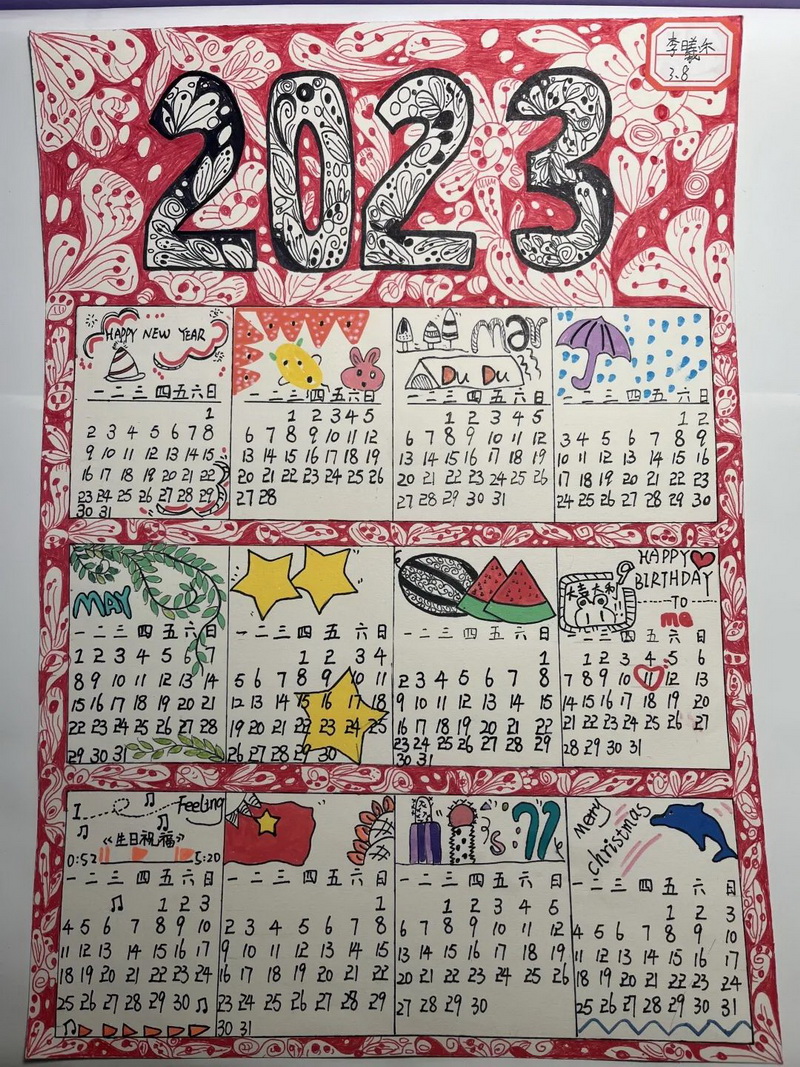 李曦
3.8
2023
HAPPY NEW YEAR
一 二 三 四 五 六 日
1
2 3 4 5 6 7 8
9 10 11 12 13 14 15
16 17 18 19 20 21 22
23 24 25 26 27 28 29
30 31
一 二 三 四 五 六 日
1 2 3 4 5
6 7 8 9 10 11 12
13 14 15 16 17 18 19
20 21 22 23 24 25 26
27 28
mar
Du Du
一 二 三 四 五 六 日
1 2 3 4 5
6 7 8 9 10 11 12
13 14 15 16 17 18 19
20 21 22 23 24 25 26
27 28 29 30 31
一 二 三 四 五 六 日
1 2
3 4 5 6 7 8 9
10 11 12 13 14 15 16
17 18 19 20 21 22 23
24 25 26 27 28 29 30
MAY
一 二 三 四 五 六 日
1 2 3 4 5 6 7
8 9 10 11 12 13 14
15 16 17 18 19 20 21
22 23 24 25 26 27 28
29 30 31
一 二 三 四 五 六 日
1 2 3 4
5 6 7 8 9 10 11
12 13 14 15 16 17 18
19 20 21 22 23 24 25
26 27 28 29 30
一 二 三 四 五 六 日
1
2 3 4 5 6 7 8
9 10 11 12 13 14 15
16 17 18 19 20 21 22
23 24 25 26 27 28 29
30 31
HAPPY
BIRTHDAY
TO
me
大吉大利
一 二 三 四 五 六 日
1 2 3 4 5 6
7 8 9 10 11 12 13
14 15 16 17 18 19 20
21 22 23 24 25 26 27
28 29 30 31
I Feeling
《生日祝福》
0:52 5:20
一 二 三 四 五 六 日
1 2 3
4 5 6 7 8 9 10
11 12 13 14 15 16 17
18 19 20 21 22 23 24
25 26 27 28 29 30
一 二 三 四 五 六 日
1
2 3 4 5 6 7 8
9 10 11 12 13 14 15
16 17 18 19 20 21 22
23 24 25 26 27 28 29
30 31
11
一 二 三 四 五 六 日
1 2 3 4 5
6 7 8 9 10 11 12
13 14 15 16 17 18 19
20 21 22 23 24 25 26
27 28 29 30
merry
christmas
一 二 三 四 五 六 日
1 2 3
4 5 6 7 8 9 10
11 12 13 14 15 16 17
18 19 20 21 22 23 24
25 26 27 28 29 30 31